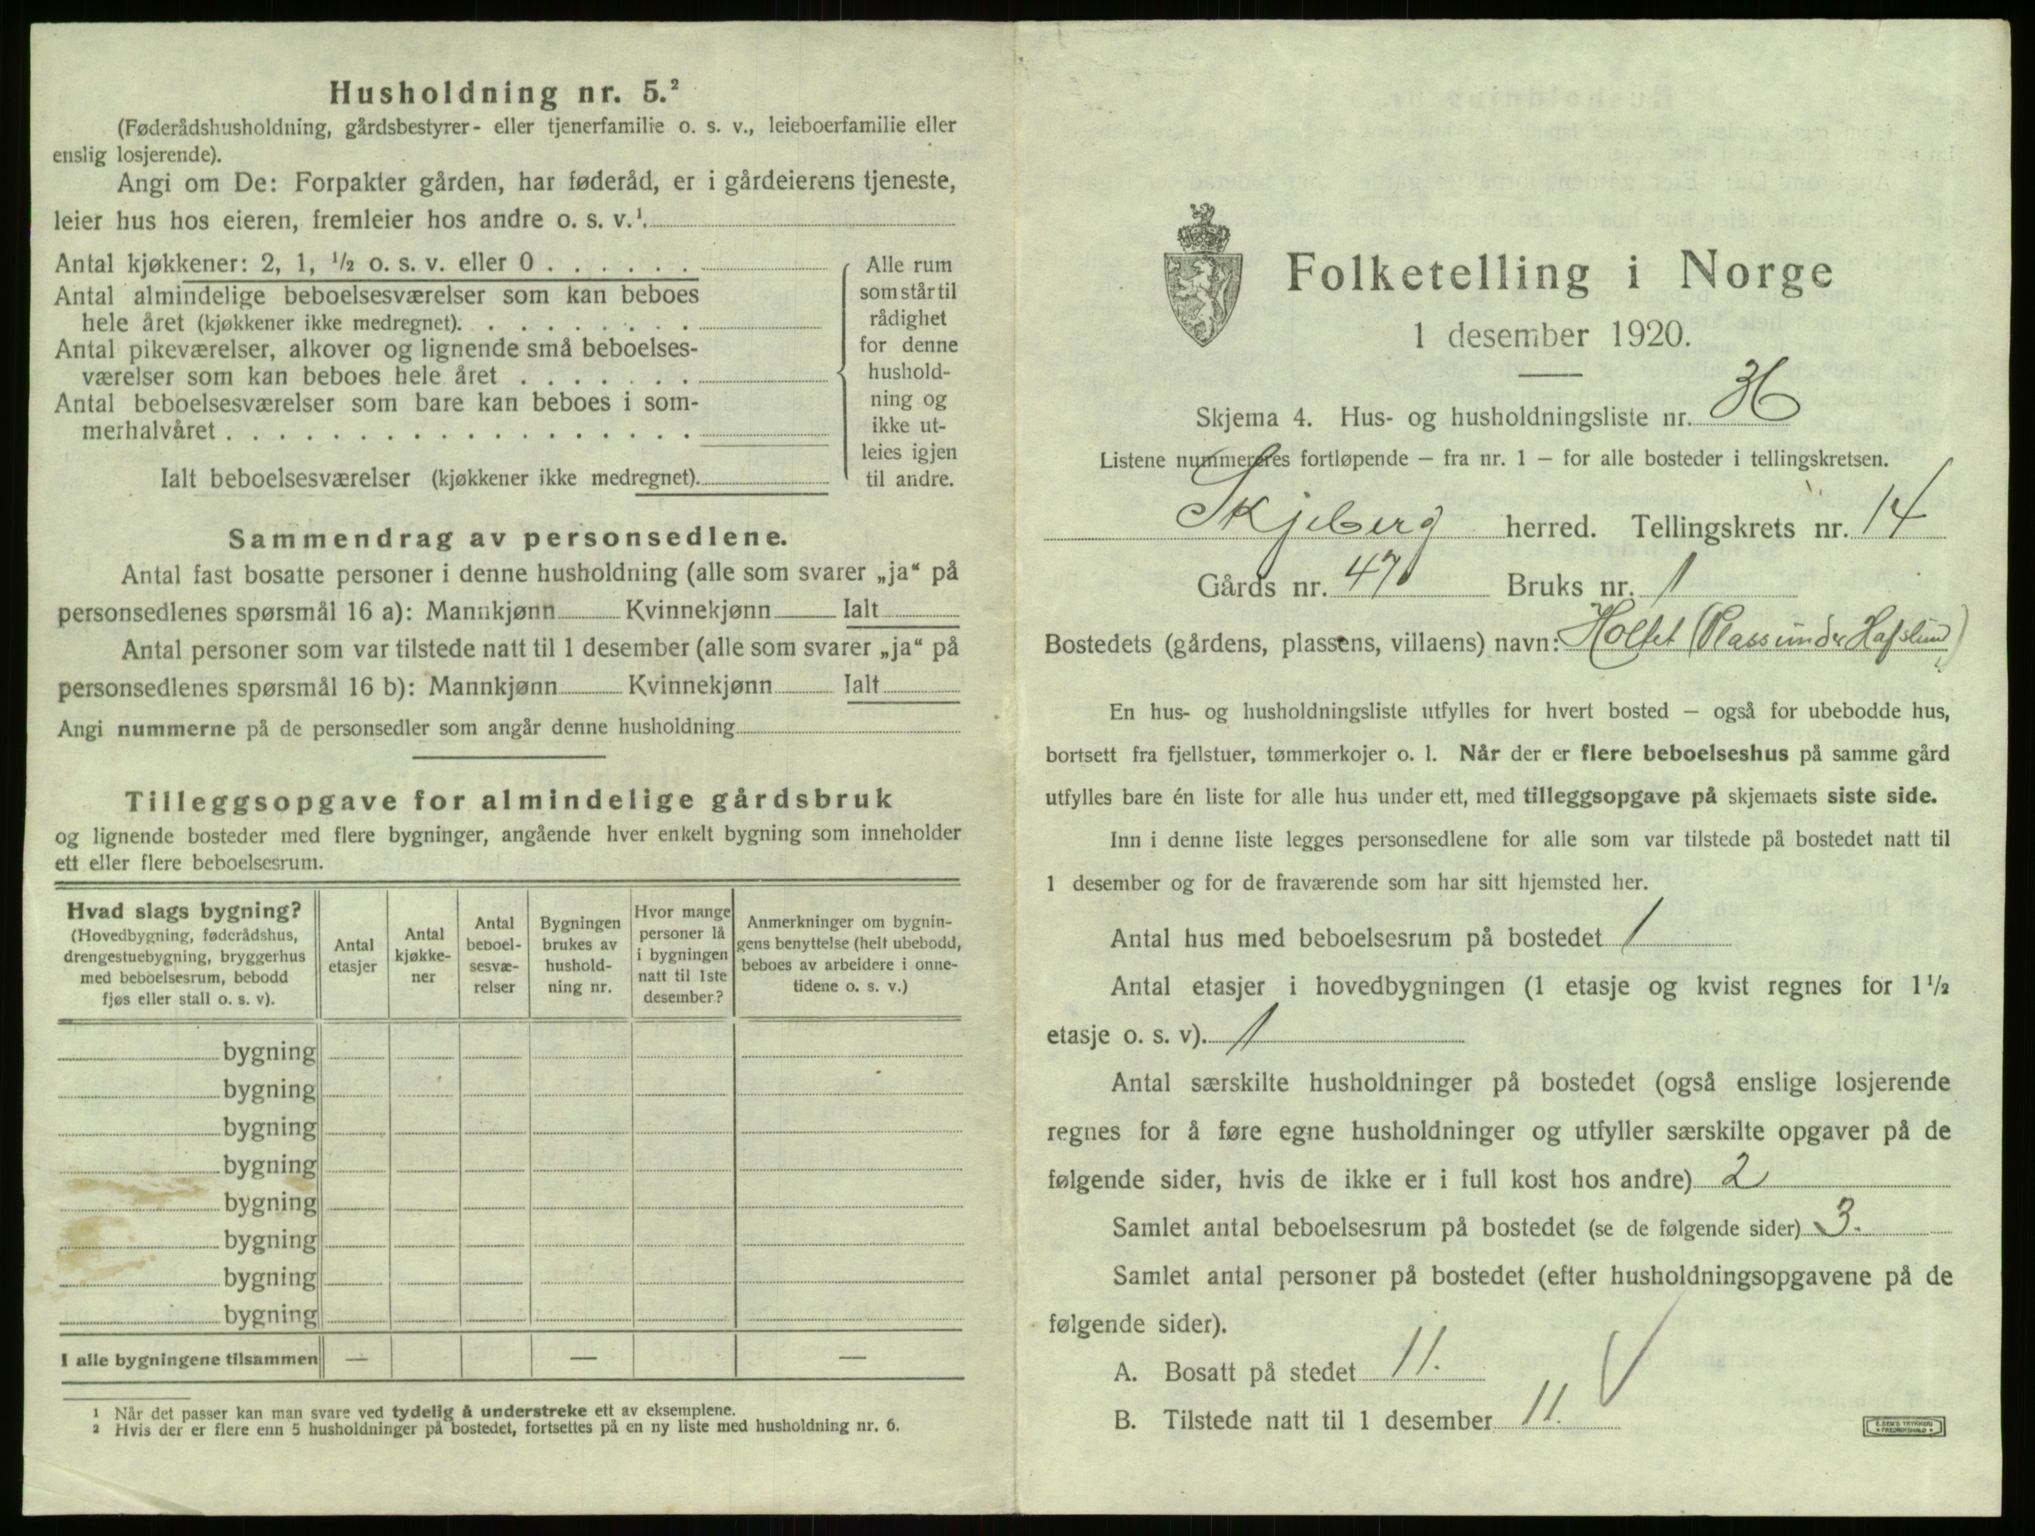 Husholdning nr. 5.²
(Føderådshusholdning, gårdsbestyrer- eller tjenerfamilie o. s. v., leieboerfamilie eller
enslig losjerende).
Angi om De: Forpakter gården, har føderåd, er i gårdeierens tjeneste,
leier hus hos eieren, fremleier hos andre o. s. v.¹
Antal kjøkkener: 2, 1, ½ o. s. v. eller 0 . . . . . .
Antal almindelige beboelsesværelser som kan beboes
hele året (kjøkkener ikke medregnet). . . . . . . . .
Antal pikeværelser, alkover og lignende små beboelses-
værelser som kan beboes hele året . . . . . . .
Antal beboelsesværelser som bare kan beboes i som-
merhalvåret . . . . . . . . . . . . . . . . . .
Ialt beboelsesværelser (kjøkkener ikke medregnet).
Alle rum
som står til
rådighet
for denne
hushold-
ning og
ikke ut-
leies igjen
til andre.
Sammendrag av personsedlene.
Antal fast bosatte personer i denne husholdning (alle som svarer „ja“ på
personsedlenes spørsmål 16 a): Mannkjønn Kvinnekjønn Ialt
Antal personer som var tilstede natt til 1 desember (alle som svarer „ja“ på
personsedlenes spørsmål 16 b): Mannkjønn Kvinnekjønn Ialt
Angi nummerne på de personsedler som angår denne husholdning
Tilleggsopgave for almindelige gårdsbruk
og lignende bosteder med flere bygninger, angående hver enkelt bygning som inneholder
ett eller flere beboelsesrum.
Hvad slags bygning?
(Hovedbygning, føderådshus,
drengestuebygning, bryggerhus
med beboelsesrum, bebodd
fjøs eller stall o. s. v).
Antal
etasjer
Antal
kjøkke-
ner
Antal
beboel-
sesvæ-
relser
Bygningen
brukes av
hushold-
ning nr.
Hvor mange
personer lå
i bygningen
natt til 1ste
desember?
Anmerkninger om bygnin-
gens benyttelse (helt ubebodd,
beboes av arbeidere i onne-
tidene o. s. v.)
bygning
bygning
bygning
bygning
bygning
bygning
bygning
bygning
I alle bygningene tilsammen — — —
¹ Når det passer kan man svare ved tydelig å understreke ett av eksemplene.
² Hvis der er flere enn 5 husholdninger på bostedet, fortsettes på en ny liste med husholdning nr. 6.
Folketelling i Norge
1 desember 1920.
Skjema 4. Hus- og husholdningsliste nr. 36
Listene nummereres fortløpende – fra nr. 1 – for alle bosteder i tellingskretsen.
Skjeberg herred. Tellingskrets nr. 14
Gårds nr. 47 Bruks nr. 1
Bostedets (gårdens, plassens, villaens) navn: Holtet (Plass under Hafslund)
En hus- og husholdningsliste utfylles for hvert bosted – også for ubebodde hus,
bortsett fra fjellstuer, tømmerkojer o. l. Når der er flere beboelseshus på samme gård
utfylles bare én liste for alle hus under ett, med tilleggsopgave på skjemaets siste side.
Inn i denne liste legges personsedlene for alle som var tilstede på bostedet natt til
1 desember og for de fraværende som har sitt hjemsted her.
Antal hus med beboelsesrum på bostedet 1
Antal etasjer i hovedbygningen (1 etasje og kvist regnes for 1½
etasje o. s. v). 1
Antal særskilte husholdninger på bostedet (også enslige losjerende
regnes for å føre egne husholdninger og utfyller særskilte opgaver på de
følgende sider, hvis de ikke er i full kost hos andre) 2
Samlet antal beboelsesrum på bostedet (se de følgende sider) 3.
Samlet antal personer på bostedet (efter husholdningsopgavene på de
følgende sider).
A. Bosatt på stedet 11.
B. Tilstede natt til 1 desember 11.